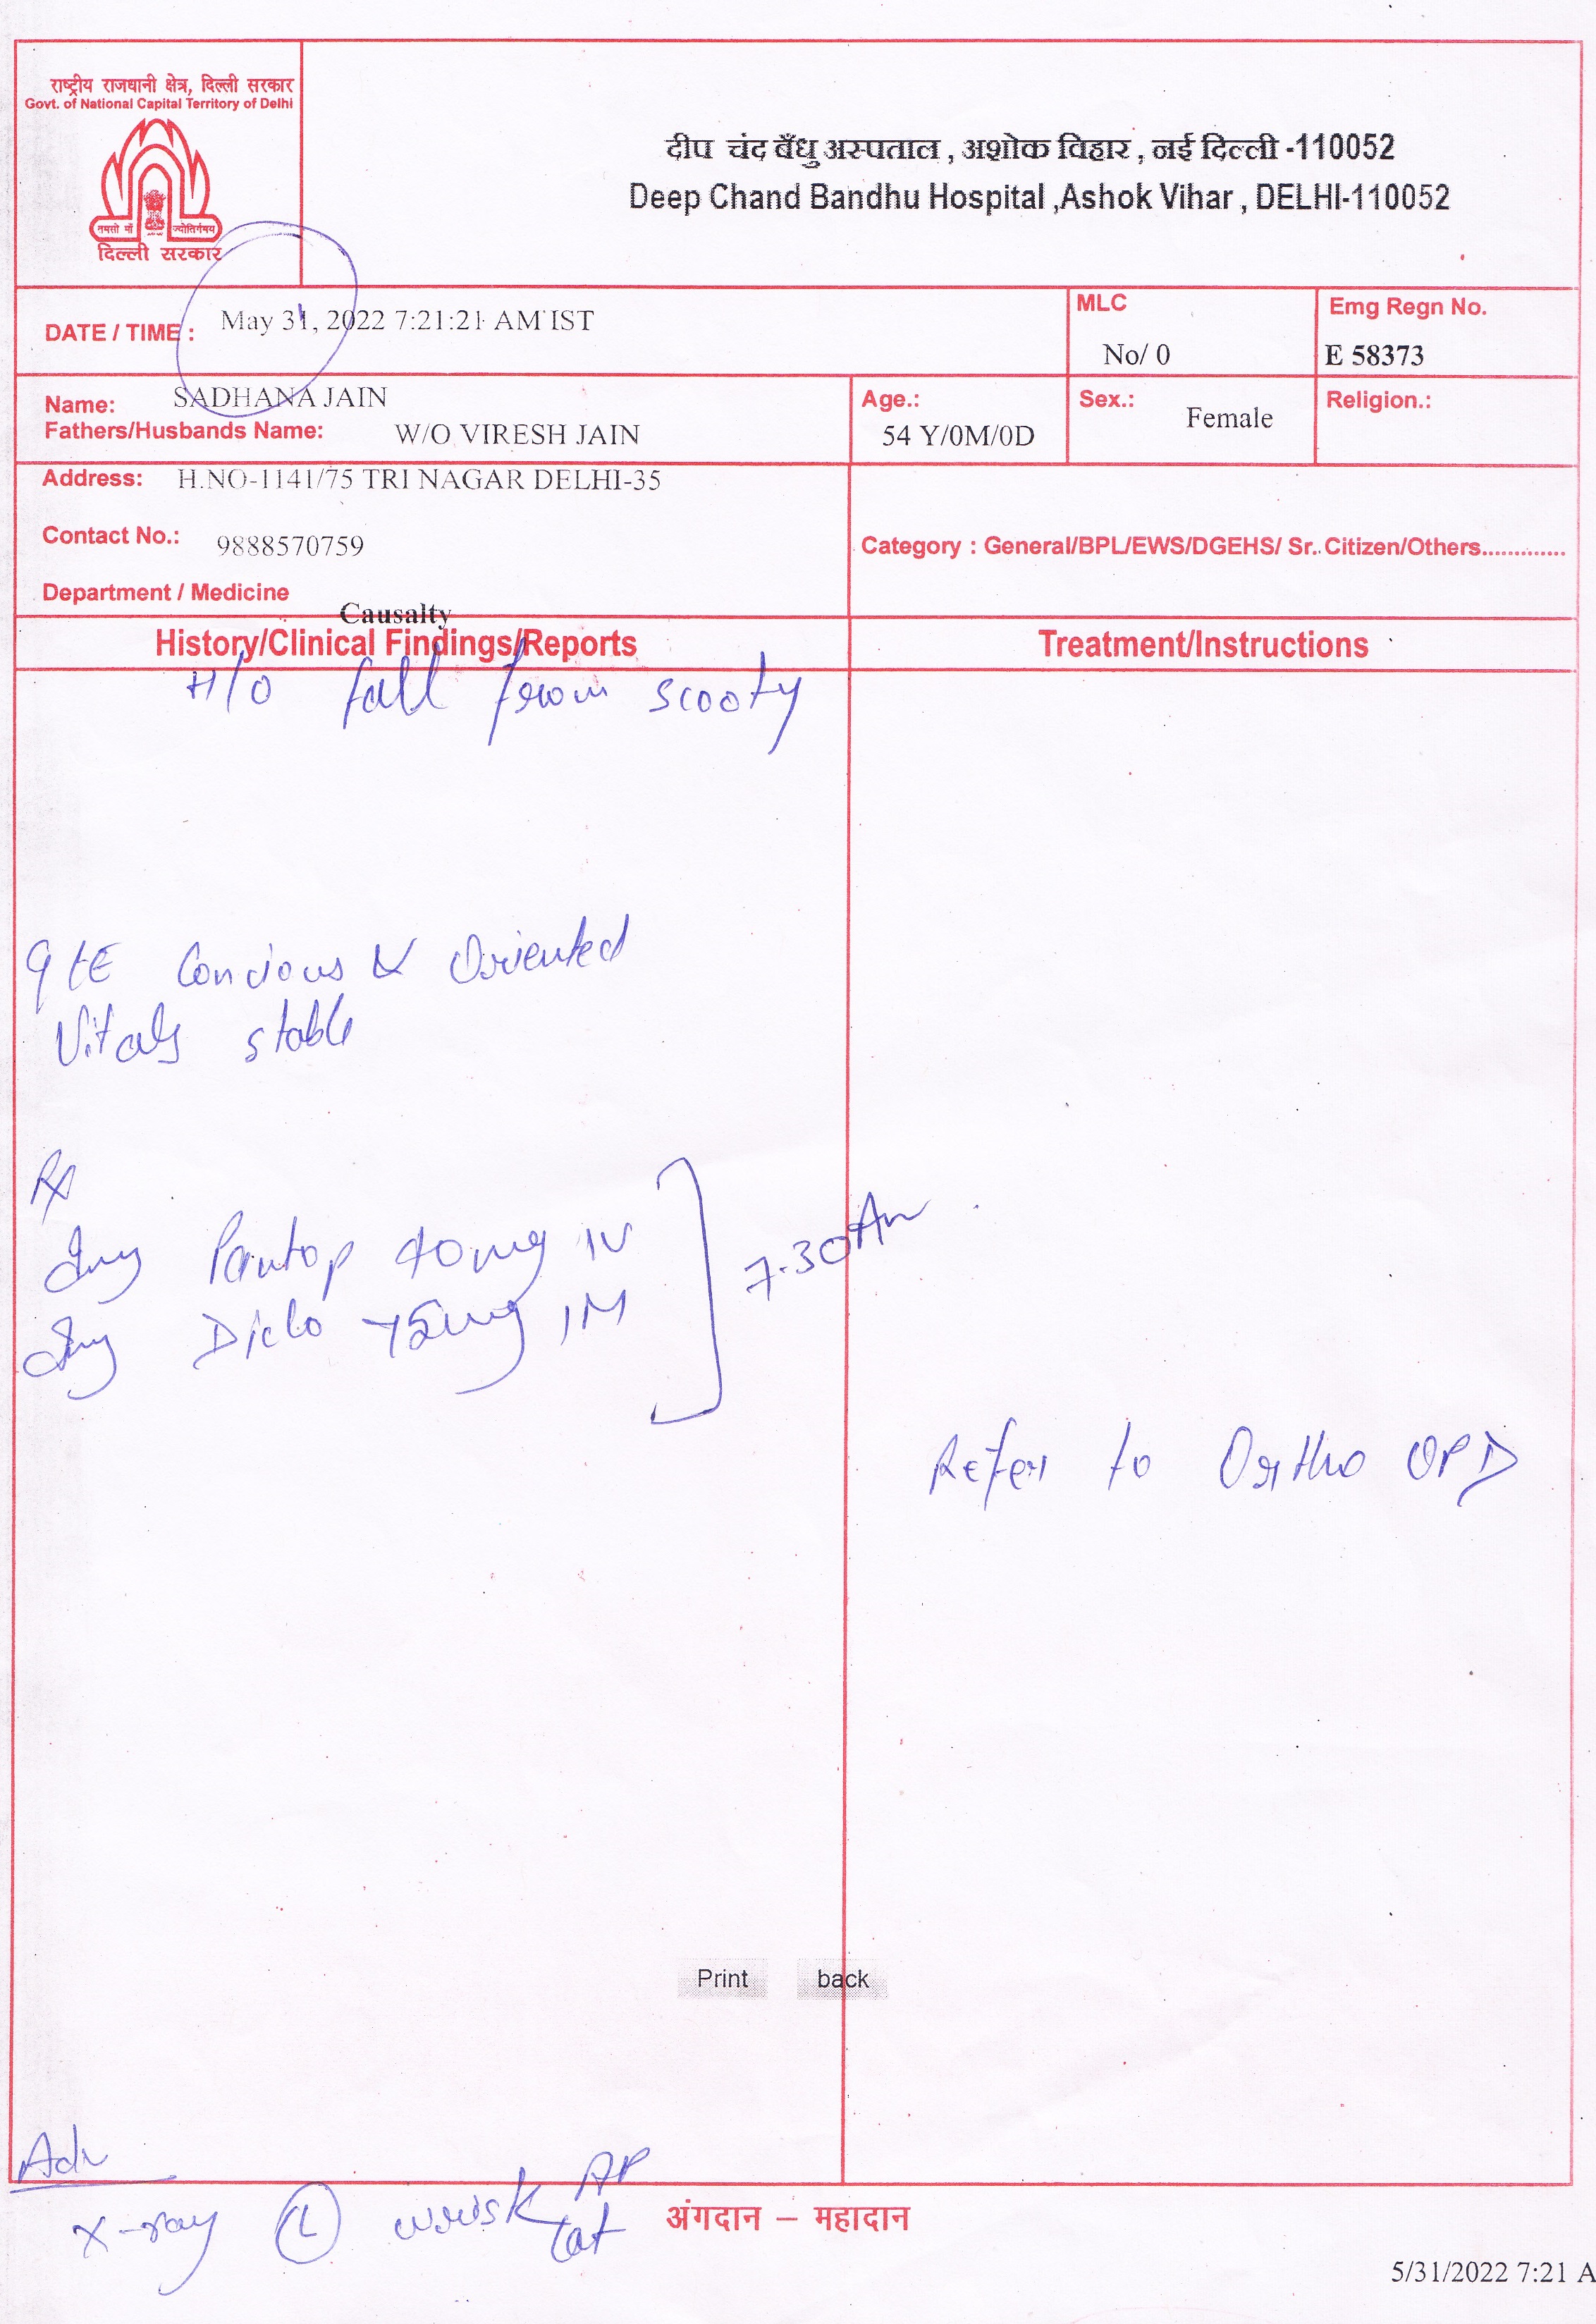 राष्ट्रीय राजधानी क्षेत्र, दिल्ली सरकार
Govt. of National Capital Territory of Delhi
दिल्ली सरकार
दीप चंद बँधु अस्पताल , अशोक विहार , नई दिल्ली -110052
Deep Chand Bandhu Hospital ,Ashok Vihar , DELHI-110052
DATE / TIME : May 31, 2022 7:21:21 AM IST
MLC
No/ 0
Emg Regn No.
E 58373
Name: SADHANA JAIN
Fathers/Husbands Name: W/O VIRESH JAIN
Age.:
54 Y/0M/0D
Sex.: Female
Religion.:
Address: H.NO-1141/75 TRI NAGAR DELHI-35
Contact No.: 9888570759
Category : General/BPL/EWS/DGEHS/ Sr. Citizen/Others.............
Department / Medicine
Causalty
History/Clinical Findings/Reports
Treatment/Instructions
H/o fall from scooty
Concious & Oriented
Vitals stable
Rx
Inj Pantop 40mg IV
Inj Diclo 75mg IM
7.30 Am
Refer to Ortho OPD
Print back
Adv
X-ray (L) wrist AP
Lat
अंगदान – महादान
5/31/2022 7:21 A